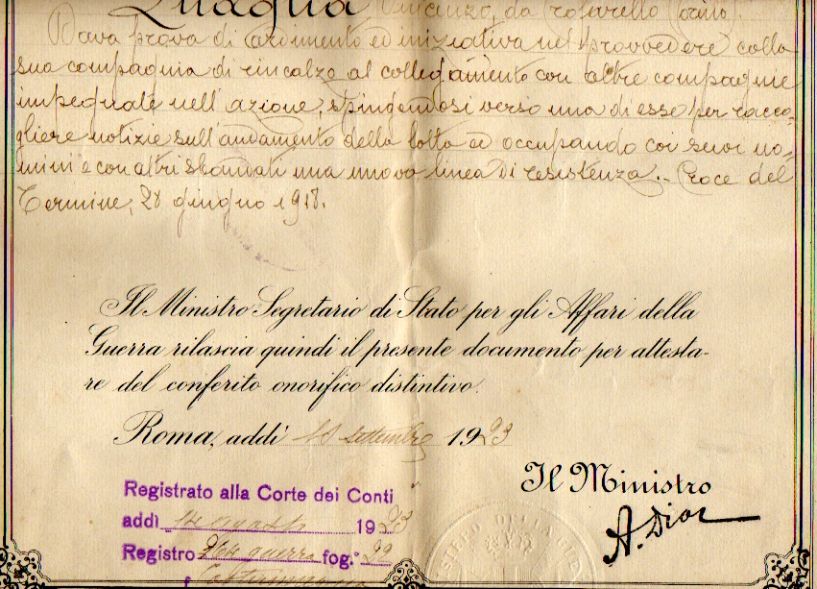 Quaglia Vincenzo, da Trofarello (Torino).
Dava prova di ardimento ed iniziativa nel provvedere colla
sua compagnia di rincalzo al collegamento con altre compagnie
impegnate nell'azione, spingendosi verso una di esse per racco-
gliere notizie sull'andamento della lotta ed occupando coi suoi uo-
mini e con altri sbandati una nuova linea di resistenza. - Croce del
Termine, 28 giugno 1918.
Il Ministro Segretario di Stato per gli Affari della
Guerra rilascia quindi il presente documento per attesta-
re del conferito onorifico distintivo.
Roma, addì 10 settembre 1923
Il Ministro
Registrato alla Corte dei Conti
addì 14 agosto 1923
A. Diaz
Registro 264 guerra fog.° 22